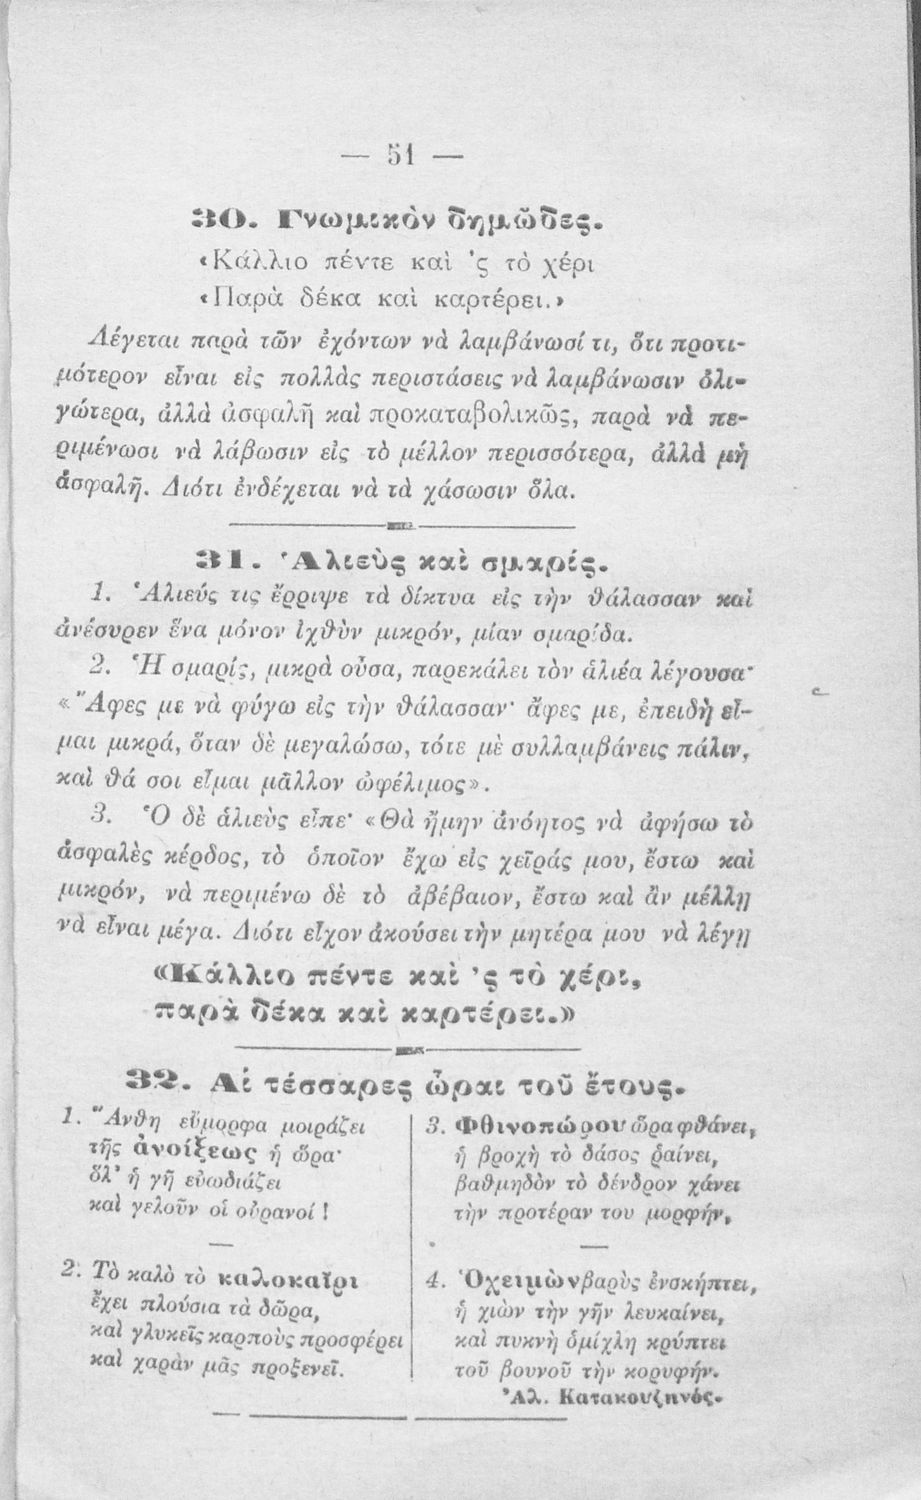 — 51 —
30. Γνωμικὸν δημῶδες.
«Κάλλιο πέντε καὶ 'ς τὸ χέρι
«Παρὰ δέκα καὶ καρτέρει.»
Λέγεται παρὰ τῶν ἐχόντων νὰ λαμβάνωσί τι, ὅτι προτι-
μότερον εἶναι εἰς πολλὰς περιστάσεις νὰ λαμβάνωσιν ὀλι-
γώτερα, ἀλλὰ ἀσφαλῆ καὶ προκαταβολικῶς, παρὰ νὰ πε-
ριμένωσι νὰ λάβωσιν εἰς τὸ μέλλον περισσότερα, ἀλλὰ μὴ
ἀσφαλῆ. Διότι ἐνδέχεται νὰ τὰ χάσωσιν ὅλα.
31. Ἁλιεὺς καὶ σμαρίς.
1. Ἁλιεύς τις ἔρριψε τὰ δίκτυα εἰς τὴν θάλασσαν καὶ
ἀνέσυρεν ἕνα μόνον ἰχθὺν μικρόν, μίαν σμαρίδα.
2. Ἡ σμαρίς, μικρὰ οὖσα, παρεκάλει τὸν ἁλιέα λέγουσα·
«Ἄφες με νὰ φύγω εἰς τὴν θάλασσαν· ἄφες με, ἐπειδὴ εἶ-
μαι μικρά, ὅταν δὲ μεγαλώσω, τότε μὲ συλλαμβάνεις πάλιν,
καὶ θά σοι εἶμαι μᾶλλον ὠφέλιμος».
3. Ὁ δὲ ἁλιεὺς εἶπε· «Θὰ ἤμην ἀνόητος νὰ ἀφήσω τὸ
ἀσφαλὲς κέρδος, τὸ ὁποῖον ἔχω εἰς χεῖράς μου, ἔστω καὶ
μικρόν, νὰ περιμένω δὲ τὸ ἀβέβαιον, ἔστω καὶ ἂν μέλλῃ
νὰ εἶναι μέγα. Διότι εἶχον ἀκούσει τὴν μητέρα μου νὰ λέγῃ
«Κάλλιο πέντε καὶ 'ς τὸ χέρι,
παρὰ δέκα καὶ καρτέρει.»
32. Αἱ τέσσαρες ὧραι τοῦ ἔτους.
1. Ἄνθη εὔμορφα μοιράζει
τῆς ἀνοίξεως ἡ ὥρα·
ὅλ' ἡ γῆ εὐωδιάζει
καὶ γελοῦν οἱ οὐρανοί !
—
2. Τὸ καλὸ τὸ καλοκαῖρι
ἔχει πλούσια τὰ δῶρα,
καὶ γλυκεῖς καρποὺς προσφέρει
καὶ χαρὰν μᾶς προξενεῖ.
3. Φθινοπώρου ὥρα φθάνει,
ἡ βροχὴ τὸ δάσος ῥαίνει,
βαθμηδὸν τὸ δένδρον χάνει
τὴν προτέραν του μορφήν,
—
4. Ὁ χειμὼν βαρὺς ἐνσκήπτει,
ἡ χιὼν τὴν γῆν λευκαίνει,
καὶ πυκνὴ ὁμίχλη κρύπτει
τοῦ βουνοῦ τὴν κορυφήν.
Ἀλ. Κατακουζηνός.